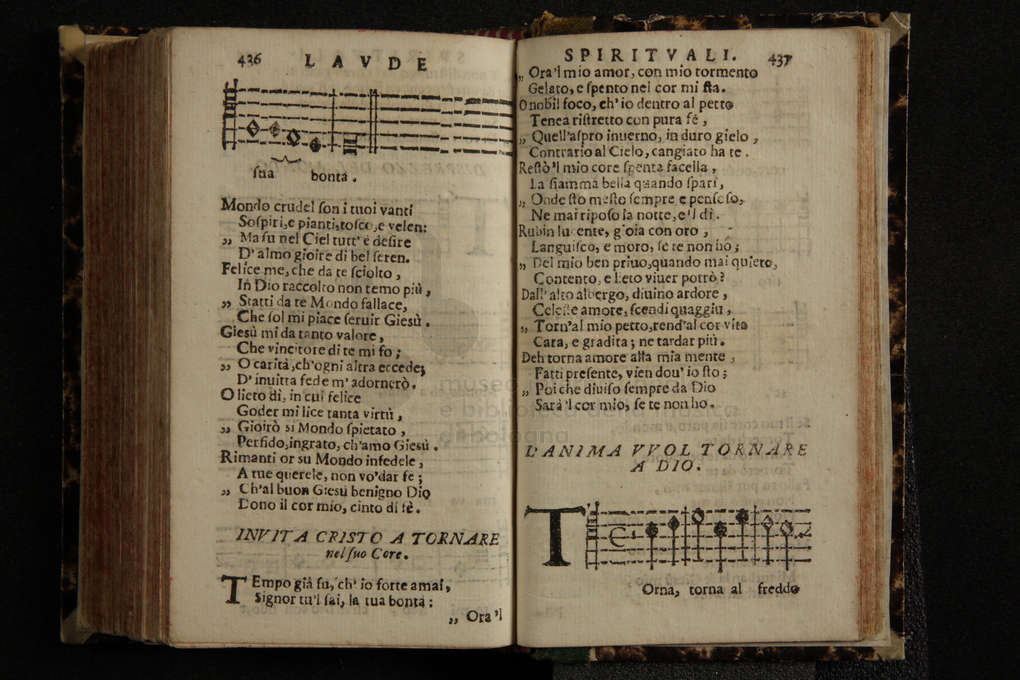 436 LAVDE
sua bontà.
Mondo crudel son i tuoi vanti
Sospiri, e pianti, tosco, e velen:
„ Ma su nel Ciel tutt' è desire
D' almo gioire di bel seren.
Felice me, che da te sciolto,
In Dio raccolto non temo più,
„ Statti da te Mondo fallace,
Che sol mi piace seruir Giesù.
Giesù mi da tanto valore,
Che vincitore di te mi fo;
„ O carità, ch'ogni altra eccede,
D' inuitta fede m' adornerò.
O lieto dì, in cui felice
Goder mi lice tanta virtù,
„ Gioirò sì Mondo spietato,
Perfido, ingrato, ch'amo Giesù.
Rimanti or su Mondo infedele,
A tue querele, non vo'dar fe;
„ Ch'al buon Giesù benigno Dio
Dono il cor mio, cinto di fè.
INVITA CRISTO A TORNARE
nel suo Core.
TEmpo già fu, ch' io forte amai,
Signor tu'l sai, la tua bontà:
„ Ora'l
SPIRITVALI. 437
„ Ora'l mio amor, con mio tormento
Gelato, e spento nel cor mi sta.
O nobil foco, ch' io dentro al petto
Tenea ristretto con pura fé,
„ Quell'aspro inuerno, in duro gielo,
Contrario al Cielo, cangiato ha te.
Restò'l mio core spenta facella,
La fiamma bella quando sparì,
„ Onde sto mesto sempre e pensoso,
Ne mai riposo la notte, e'l dì.
Rubin lucente, gioia con oro,
Languisco, e moro, se te non ho;
„ Del mio ben priuo, quando mai quieto,
Contento, e lieto viuer potrò?
Dall' alto albergo, diuino ardore,
Celeste amore, scendi quaggiu,
„ Torn'al mio petto, rend'al cor vita
Cara, e gradita; ne tardar più.
Deh torna amore alla mia mente,
Fatti presente, vien dou' io sto;
„ Poi che diuiso sempre da Dio
Sarà 'l cor mio, se te non ho.
L'ANIMA VVOL TORNARE
A DIO.
T
Orna, torna al freddo
museo
e biblioteca della musica
di bologna